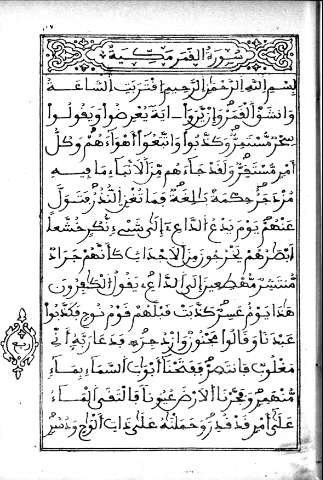 سورة القمر مكية
بسم الله الرحمن الرحيم اقتربت الساعة
وانشق القمر وإن يروا ءاية يعرضوا ويقولوا
سحر مستمر وكذبوا واتبعوا أهواءهم وكل
أمر مستقر ولقد جاءهم من الأنباء ما فيه
مزدجر حكمة بالغة فما تغن النذر فتول
عنهم يوم يدع الداع إلى شيء نكر خشعا
أبصرهم يخرجون من الأجداث كأنهم جراد
منتشر مهطعين إلى الداع يقول الكفرون
هذا يوم عسر كذبت قبلهم قوم نوح فكذبوا
عبدنا وقالوا مجنون وازدجر فدعا ربه أني
مغلوب فانتصر ففتحنا أبوب السماء بماء
منهمر وفجرنا الأرض عيونا فالتقى الماء
على أمر قد قدر وحملنه على ذات ألوح ودسر
ربع